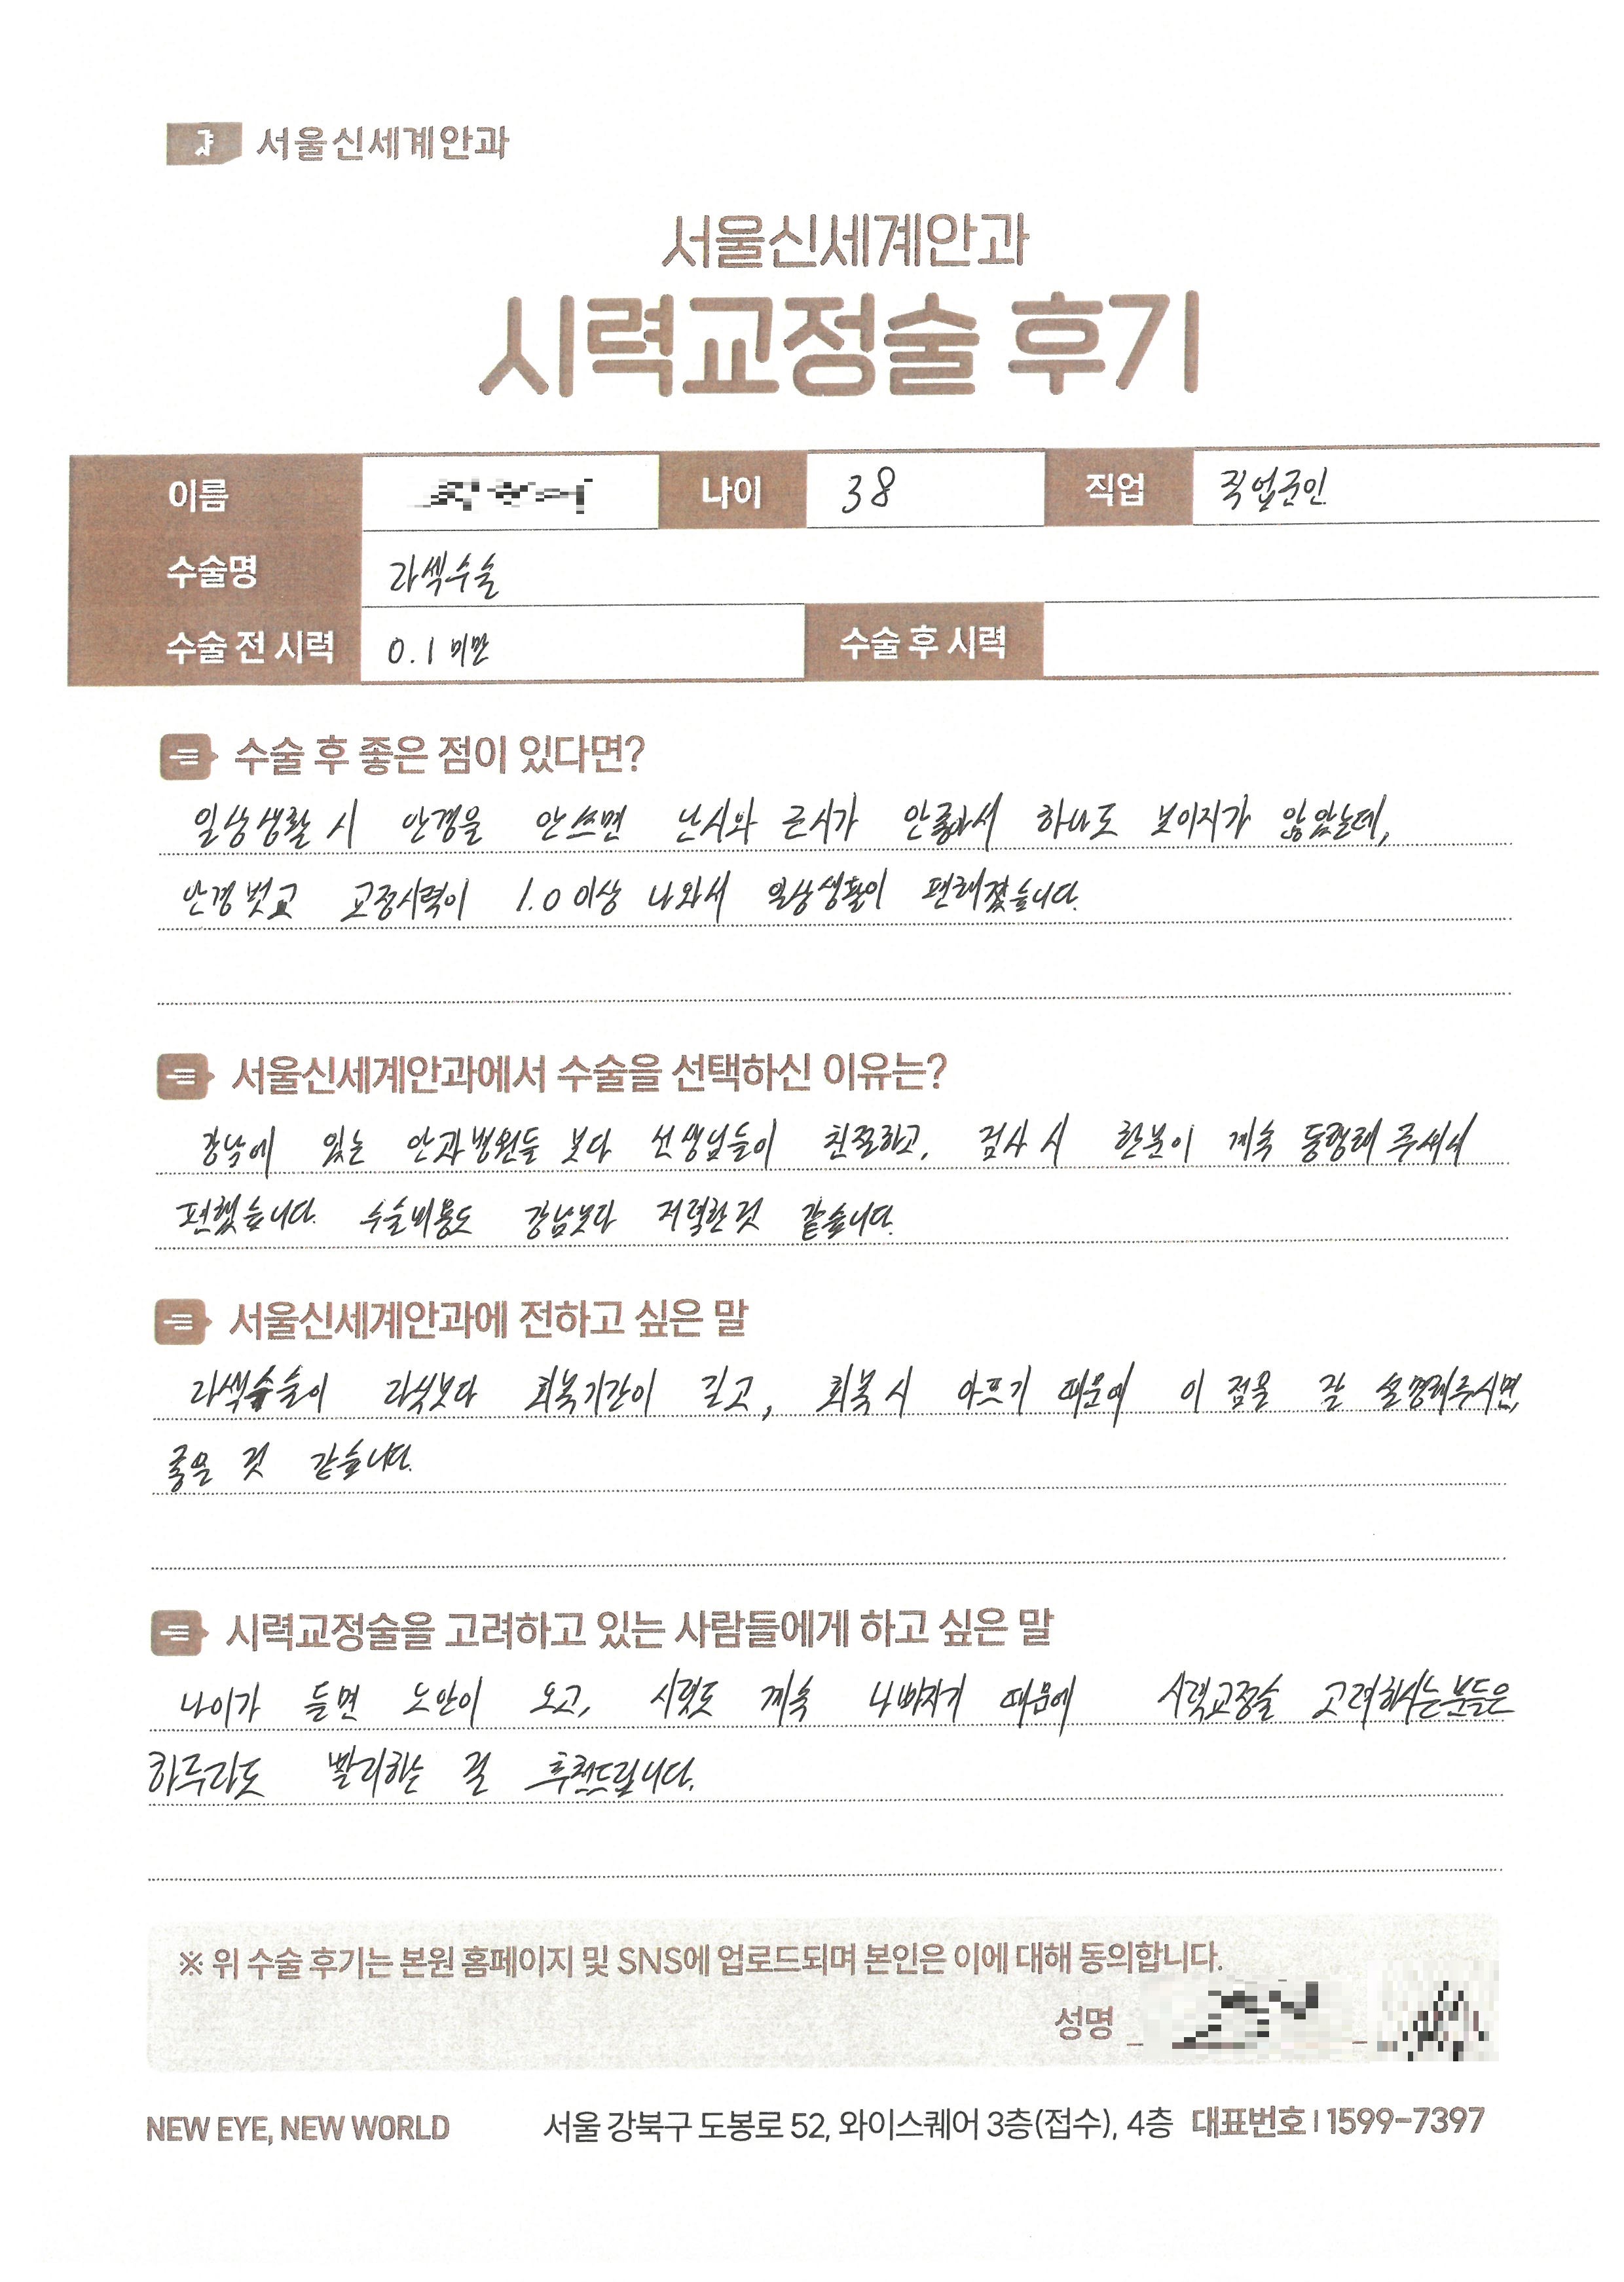 서울신세계안과
서울신세계안과
시력교정술 후기
이름 나이 38 직업 직업군인
수술명 라섹수술
수술 전 시력 0.1 미만 수술 후 시력
수술 후 좋은 점이 있다면?
일상생활 시 안경을 안쓰면 난시와 근시가 안좋아서 하나도 보이지가 않았는데,
안경 벗고 교정시력이 1.0 이상 나와서 일상생활이 편해졌습니다.
서울신세계안과에서 수술을 선택하신 이유는?
강남에 있는 안과병원들 보다 선생님들이 친절하고, 검사 시 한분이 계속 동행해 주셔서
편했습니다. 수술비용도 강남보다 저렴한것 같습니다.
서울신세계안과에 전하고 싶은 말
라섹수술이 라식보다 회복기간이 길고, 회복 시 아프기 때문에 이 점을 잘 설명해주시면,
좋은 것 같습니다.
시력교정술을 고려하고 있는 사람들에게 하고 싶은 말
나이가 들면 노안이 오고, 시력도 계속 나빠지기 때문에 시력교정술 고려하시는분들은
하루라도 빨리하는 걸 추천드립니다.
※ 위 수술 후기는 본원 홈페이지 및 SNS에 업로드되며 본인은 이에 대해 동의합니다.
성명
NEW EYE, NEW WORLD 서울 강북구 도봉로 52, 와이스퀘어 3층(접수), 4층 대표번호 | 1599-7397